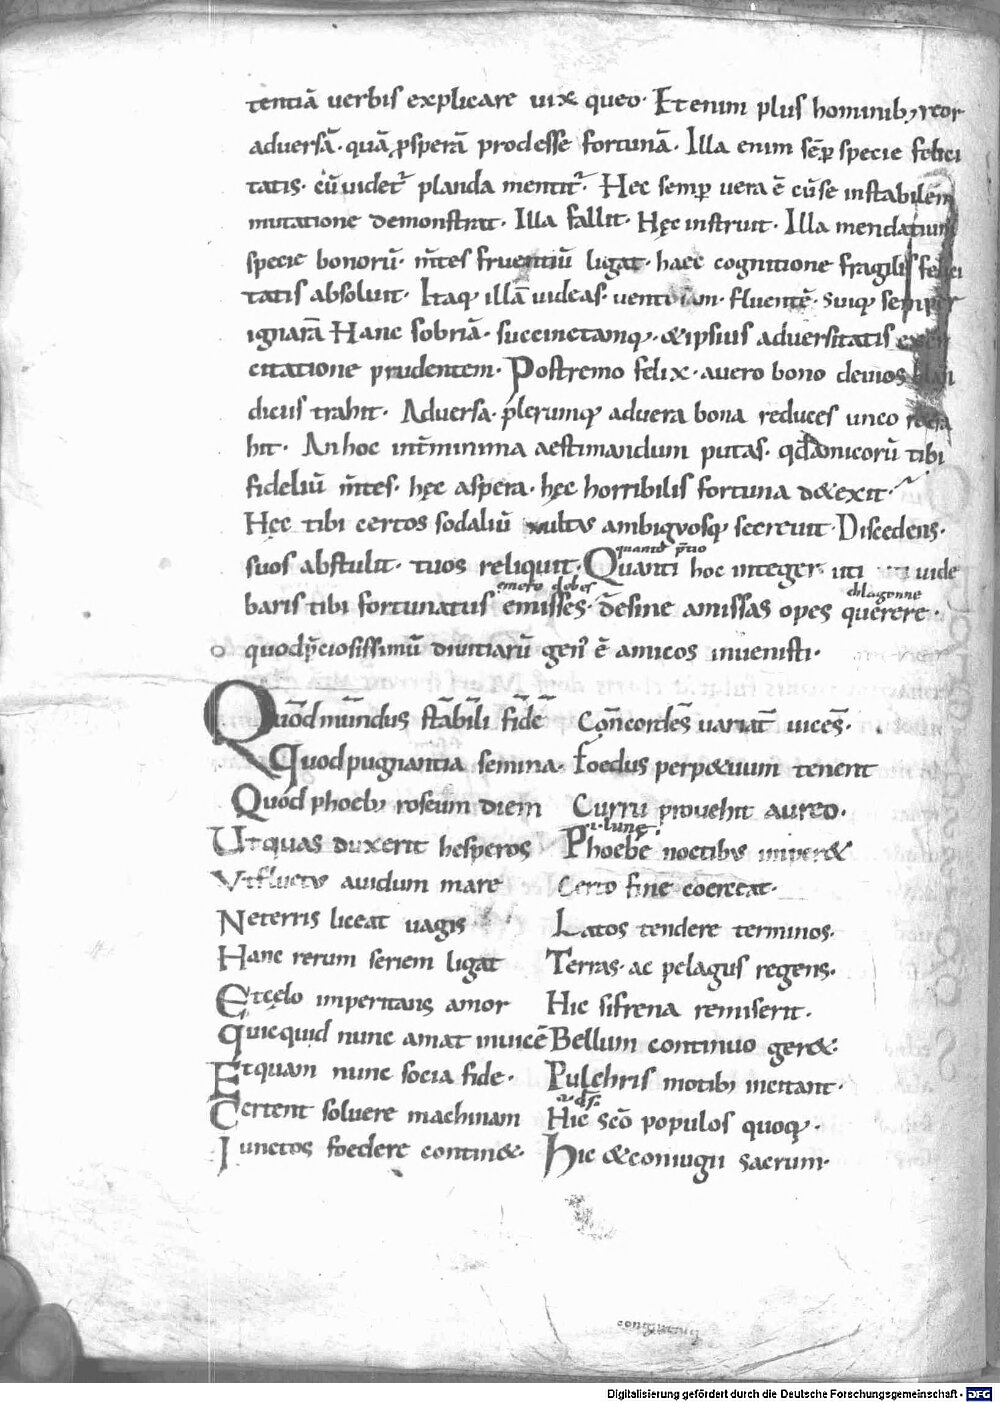 tentiā uerbis explicare uix queo· Etenim plus hominib; reor
aduersā· quā ꝓsperā prodesse fortunā· Illa enim sēꝑ specie felici
tatis· cū uidet᷑ planda mentit᷑· Hec semꝑ uera ē cū se instabilem
mutatione demonstrat· Illa fallit· Hęc instruit· Illa mendatium
specie bonorū· m̄tes fruentiū ligat· haec cognitione fragilis felici
tatis absoluit· Itaq; illā uideas· uentosam· fluentē· suiq; semper
ignarā Hanc sobriā· succinctamq;· &ipsius aduersitatis exer
citatione prudentem· Postremo felix· auero bono deuios blan
diciis trahit· Aduersa· p̄lerumq; aduera bona reduces unco retra
hit· An hoc int̄ minima aestimandum putas· qđ amicorū tibi
fideliū m̄tes· hęc aspera· hęc horribilis fortuna d&exit·
Hęc tibi certos sodaliū uultus ambiguosq; secreuit· Discedens·
suos abstulit· tuos reliquit· Quanti hoc integer· uti uide
baris tibi fortunatus emisses· desine amissas opes querere·
quod p̄ciosissimū diuitiarū gen᷒ ē amicos inuenisti·
Quōd mundus stabili fide Concordes uariat uices·
Quod pugnantia semina· foedus perp&uum tenent
Quod phoeb; roseum diem Curru prouehit aureo·
·i· lunę·
Ut quas duxerit hesperos Phoebe noctibus imper&
Vt fluctus auidum mare Certo fine coerceat·
Ne terris liceat uagis Latos tendere terminos·
Hanc rerum seriem ligat Terras· ac pelagus regens·
Et cęlo imperitans amor Hic si frena remiserit·
Quicquid nunc amat inuicē Bellum continuo ger&·
Et quam nunc socia fide· Pulchris motibi incitant·
Certent soluere machinam Hic sc̄o populos quoq;·
Iunctos foedere contin&· Hic &coniugii sacrum·
coniugium
Digitalisierung gefördert durch die Deutsche Forschungsgemeinschaft - DFG